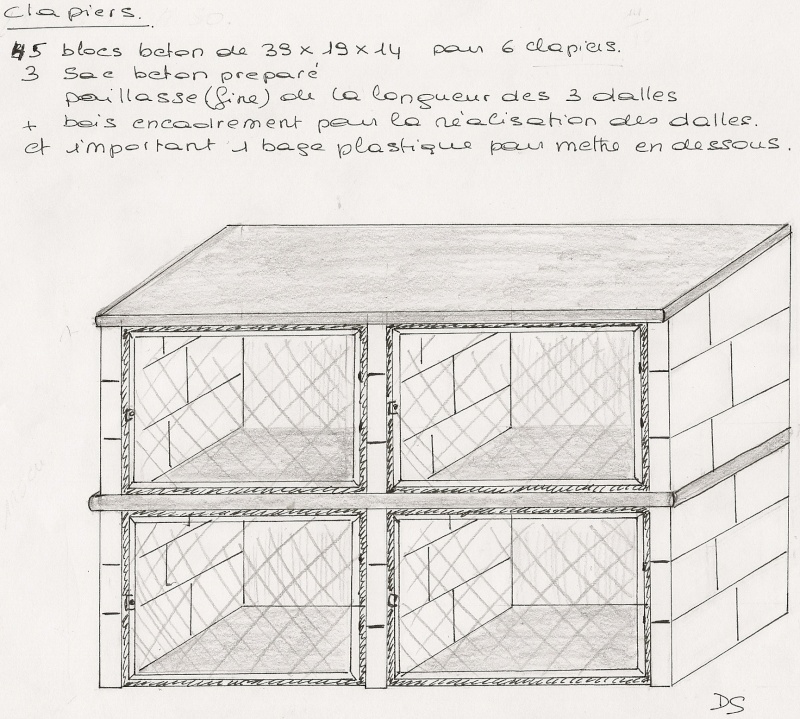 Clapiers.
45 blocs beton de 39 x 19 x 14 pour 6 clapiers.
3 Sac beton preparé
paillasse (fine) de la longueur des 3 dalles
+ bois encadrement pour la réalisation des dalles.
et important 1 base plastique pour metre en dessous.
DS